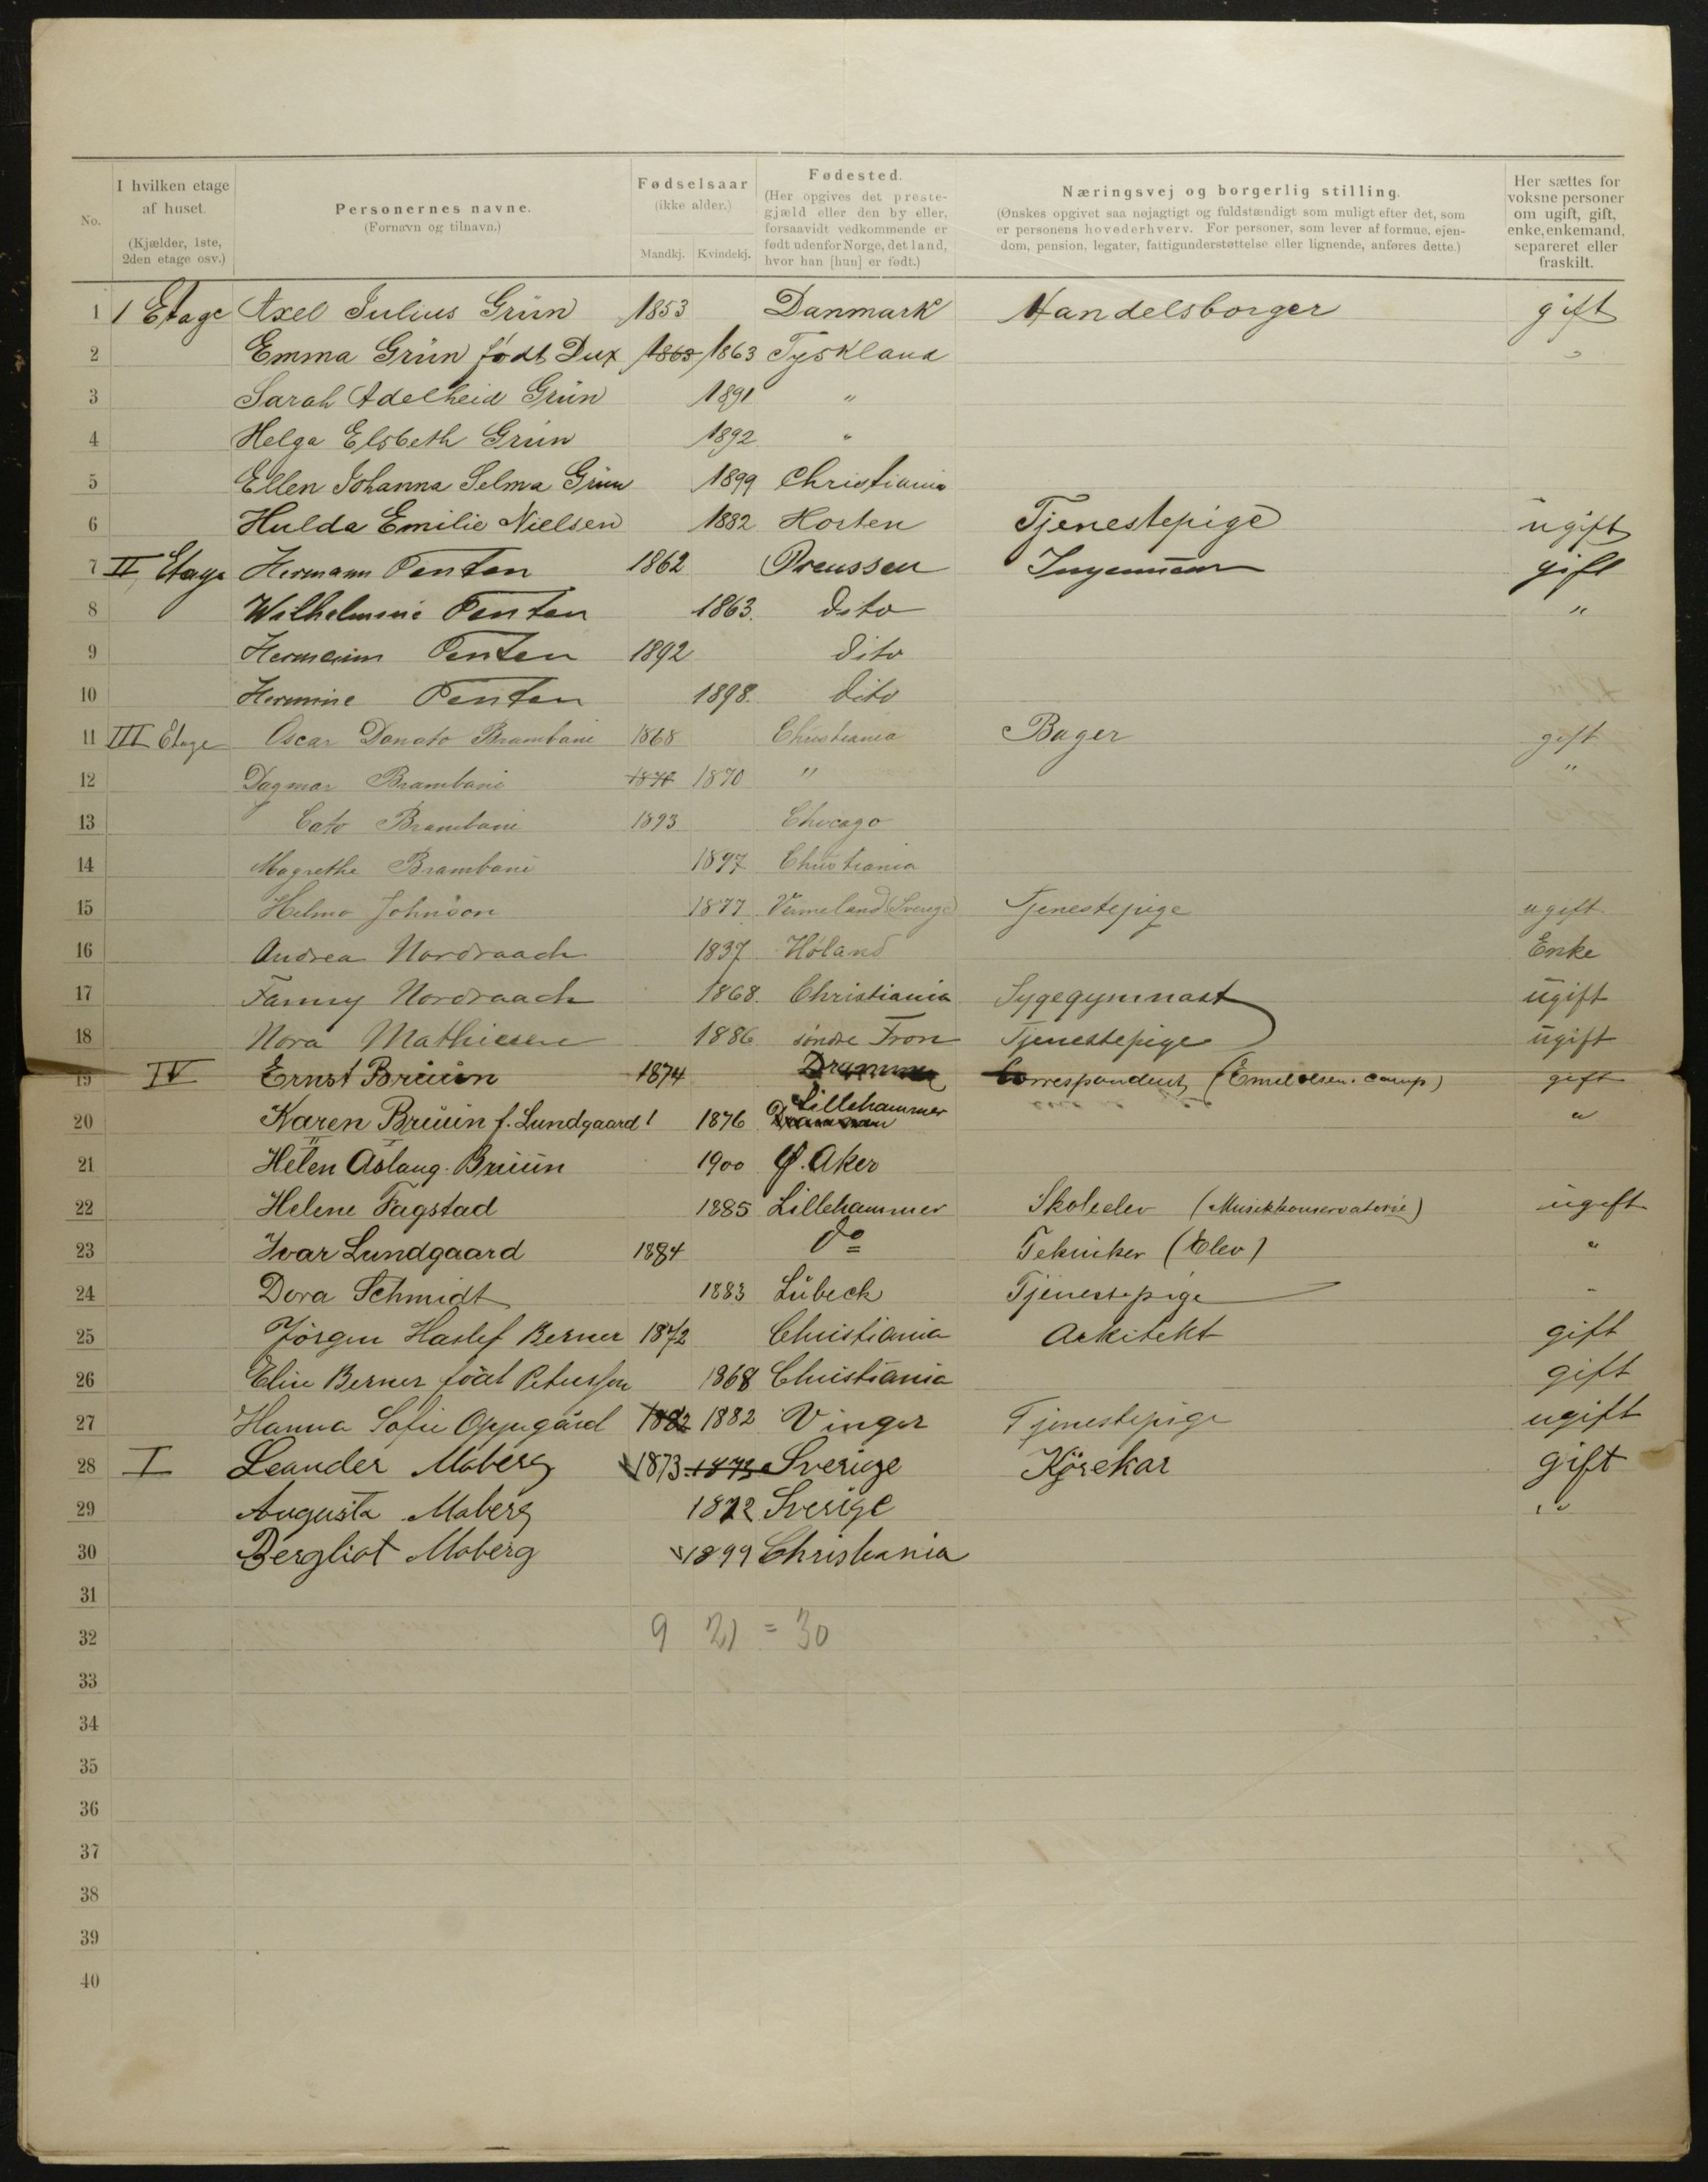 No.
I hvilken etage
af huset.
(Kjælder, 1ste,
2den etage osv.)
Personernes navne.
(Fornavn og tilnavn.)
Fødselsaar
(ikke alder.)
Mandkj. Kvindekj.
Fødested.
(Her opgives det preste-
gjæld eller den by eller,
forsaavidt vedkommende er
født udenfor Norge, det land,
hvor han [hun] er født.)
Næringsvej og borgerlig stilling.
(Ønskes opgivet saa nøjagtigt og fuldstændigt som muligt efter det, som
er personens hovederhverv. For personer, som lever af formue, ejen-
dom, pension, legater, fattigunderstøttelse eller lignende, anføres dette.)
Her sættes for
voksne personer
om ugift, gift,
enke, enkemand,
separeret eller
fraskilt.
1 1 Etage Axel Julius Grün 1853 Danmark Handelsborger gift
2 Emma Grün født Dux 1863 1863 Tyskland "
3 Sarah Adelheid Grün 1891 "
4 Helga Elsbeth Grün 1892 "
5 Ellen Johanna Selma Grün 1899 Christiania
6 Hulda Emilie Nielsen 1882 Horten Tjenestepige ugift
7 II Etage Hermann Penten 1862 Preussen gift
8 Wilhelmine Penten 1863. dito "
9 Hermann Penten 1892 dito
10 Hermine Penten 1898. dito
11 III Etage Oscar Donato Brambani 1868 Christiania Bager gift
12 Dagmar Brambani 1870 1870 " "
13 Cato Brambani 1893 Chicago
14 Magrethe Brambani 1897 Christiania
15 Helma Johnson 1877 Vermeland (Sverige) Tjenestepige ugift
16 Andrea Nordraach 1837 Høland Enke
17 Fanny Nordraach 1868. Christiania Sygegymnast ugift
18 Nora Mathiesen 1886 søndre Fron Tjenestepige ugift
19 IV Ernst Brüün 1874 Drammen Correspondent, (Emil Olsen. Comp) gift
20 Karen Brüün f. Lundgaard! 1876 Drammen Lillehammer "
21 Helen Aslaug Brüün 1900 Ø. Aker
22 Helene Fagstad 1885 Lillehammer Skoleelev (Musikkonservatorie) ugift
23 Ivar Lundgaard 1884 do Tekniker (Elev) "
24 Dora Schmidt 1883 Lübeck Tjenestepige "
25 Jörgen Haslef Berner 1872 Christiania Arkitekt gift
26 Elise Berner född Peterssen 1868 Christiania gift
27 Hanna Sofie Oppegård 1882 1882 Vinger Tjenestepige ugift
28 I Leander Moberg 1873 1873 Sverige Kjørekar gift
29 Augusta Moberg 1872 Sverige "
30 Bergliot Moberg 1899 Christiania
31
32 9 21 = 30
33
34
35
36
37
38
39
40